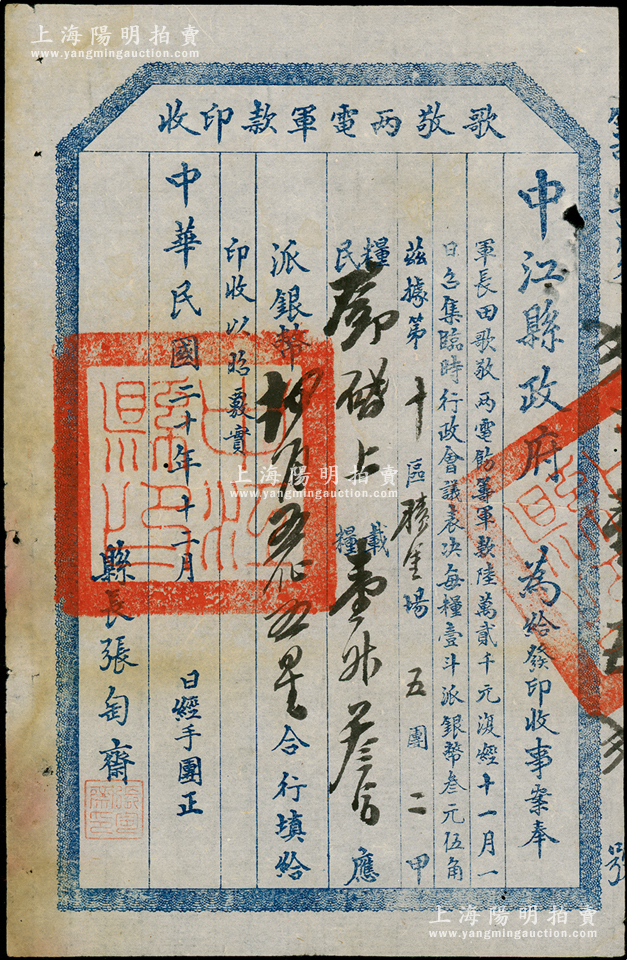 上海陽明拍賣
www.yangmingauction.com
歌敬兩電軍款印收
中江縣政府 為給發印收事案奉
軍長田歌敬兩電飭籌軍款陸萬貳千元復經十一月一
日召集臨時行政會議表决每糧壹斗派銀幣叁元伍角
茲據第十區積金場五團二甲
糧民鄧 上載糧壹升叁合應
派銀幣 合行填給
印收以昭覈實
中華民國二十年十二月 日經手團正
縣長張匋齋
號
上海陽明拍賣
www.yangmingauction.com
上海陽明拍賣
www.yangmingauction.com